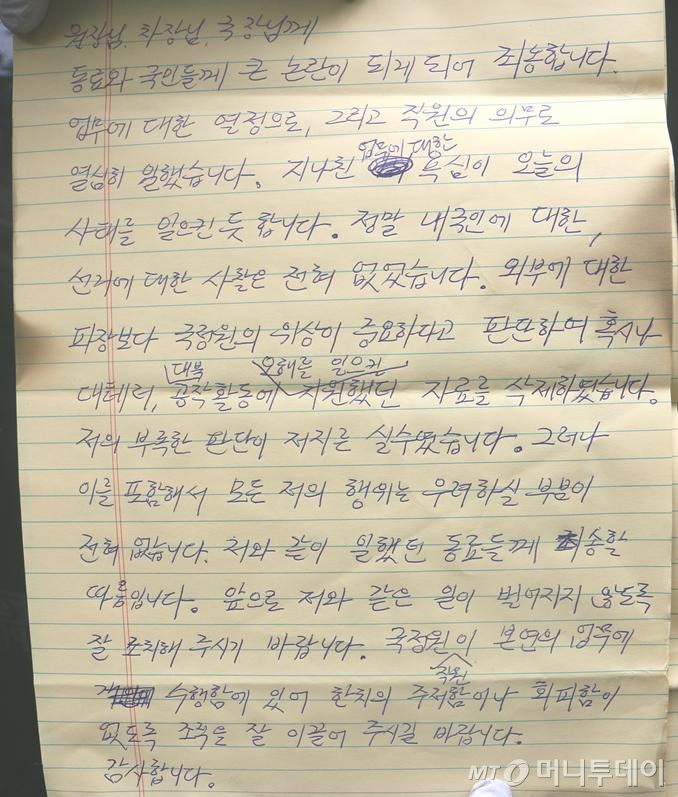 원장님, 차장님, 국장님께
동료와 국민들께 큰 논란이 되게 되어 죄송합니다.
업무에 대한 열정으로, 그리고 직원의 의무로
열심히 일했습니다. 지나친 업무에 대한 욕심이 오늘의
사태를 일으킨 듯 합니다. 정말 내국인에 대한,
선거에 대한 사찰은 전혀 없었습니다. 외부에 대한
파장보다 국정원의 위상이 중요하다고 판단하여 혹시나
대테러, 대북 공작활동에 오해를 일으킨 지원했던 자료를 삭제하였습니다.
저의 부족한 판단이 저지른 실수였습니다. 그러나
이를 포함해서 모든 저의 행위는 우려하실 부분이
전혀 없습니다. 저와 같이 일했던 동료들께 죄송할
따름입니다. 앞으로 저와 같은 일이 벌어지지 않도록
잘 조치해 주시기 바랍니다. 국정원이 본연의 업무에
수행함에 있어 한치의 직원 주저함이나 회피함이
없도록 조직을 잘 이끌어 주시길 바랍니다.
감사합니다.
MT 머니투데이